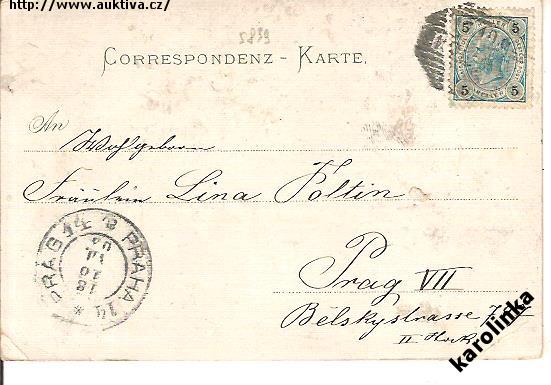 http://www.auktiva.cz/
2839
CORRESPONDENZ-KARTE.
5 5
5 5
An
Wohlgeboren
Fräulein Lina Poltin
Prag VII
Belskystrasse
II. Stock
PRAG 14 PRAHA 14
18
10
karolinka